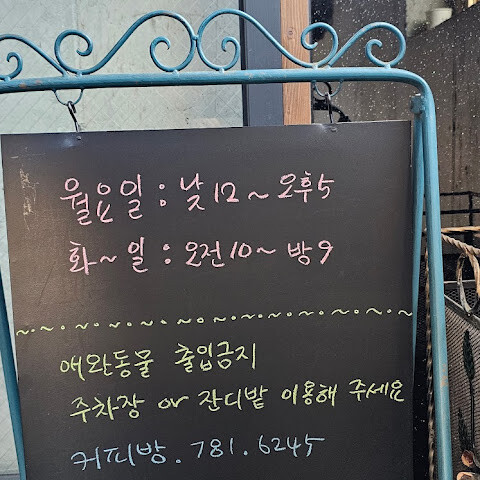 월요일 : 낮12~오후5
화~일 : 오전10~밤9
애완동물 출입금지
주차장 or 잔디밭 이용해 주세요
커피방. 781. 6245